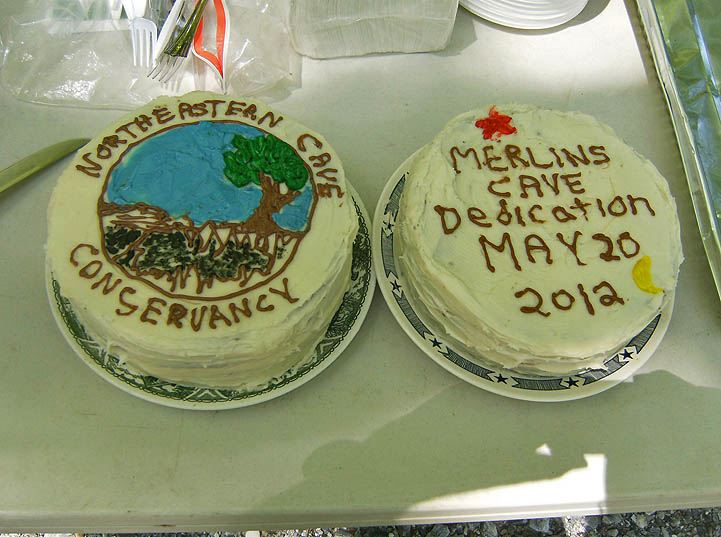 NORTHEASTERN CAVE
CONSERVANCY
MERLINS
CAVE
Dedication
MAY 20
2012